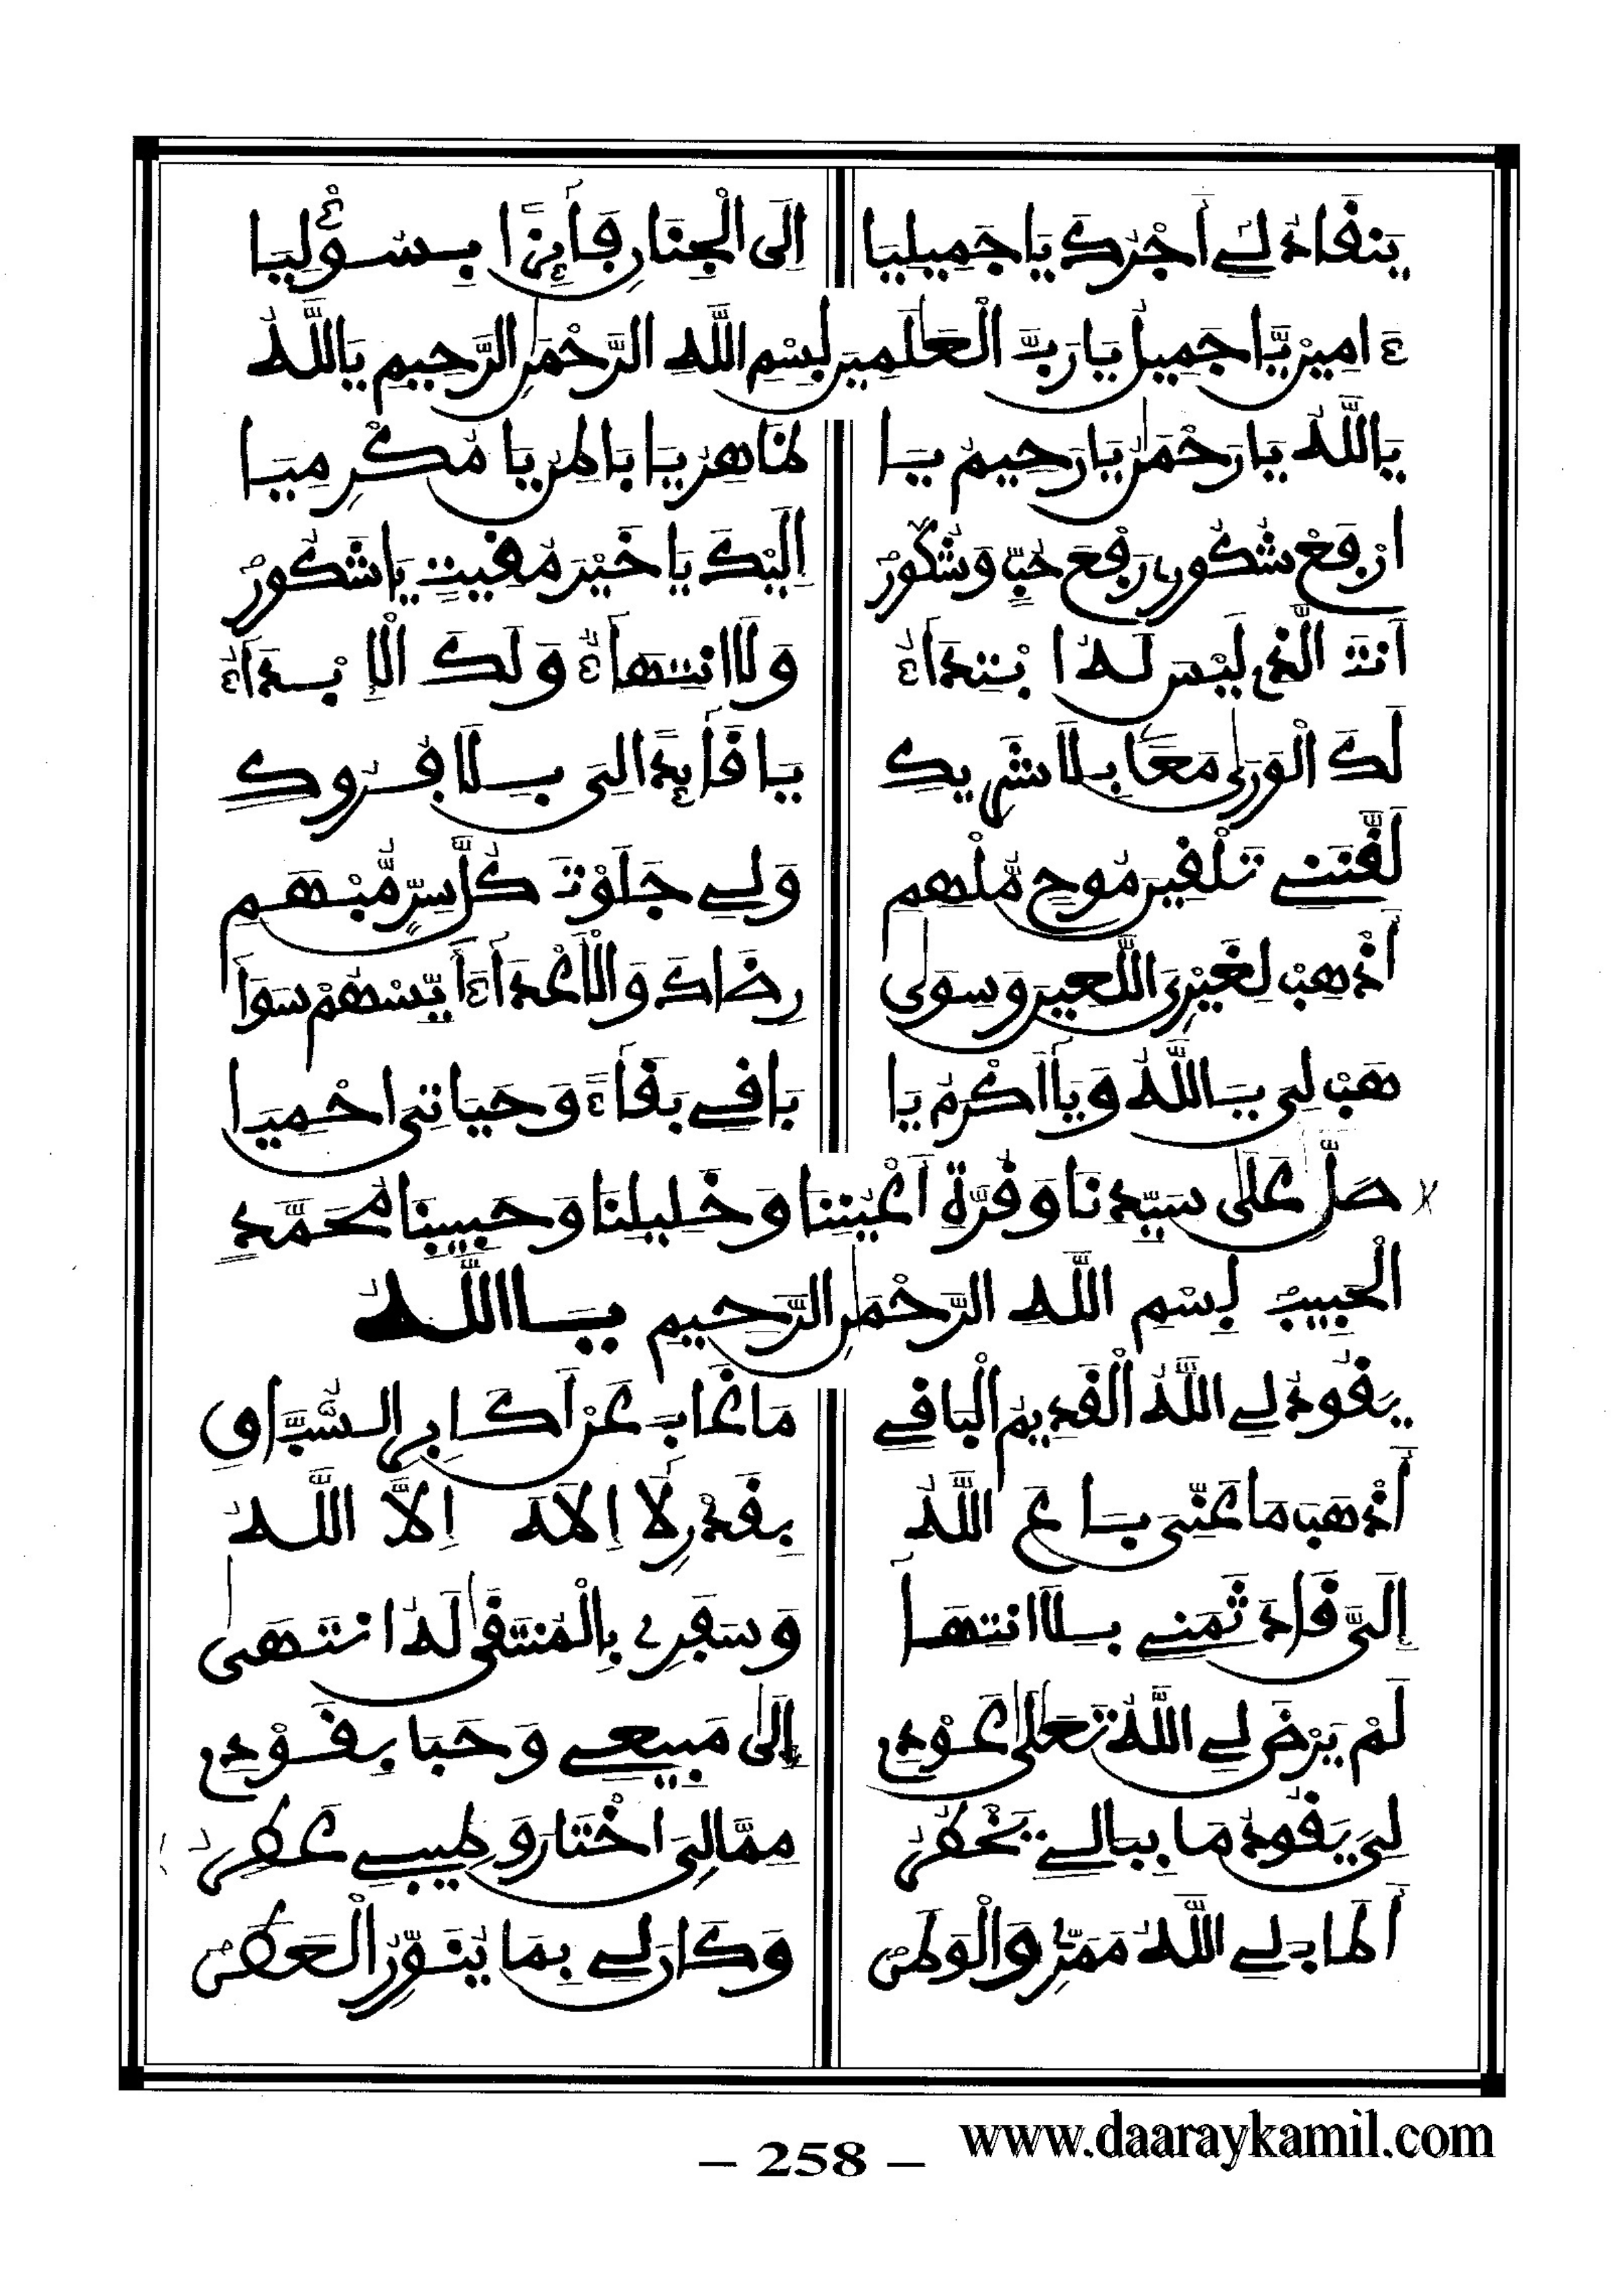 يَنقَادُ لِي أَجْرُكَ يَا جَمِيلِيَا إِلَى الْجِنَانِ فَائِزًا بِسُؤْلِيَا
ءَامِينَ يَا جَمِيلُ يَا رَبَّ الْعَالَمِينَ بِسْمِ اللَّهِ الرَّحْمَنِ الرَّحِيمِ يَا اللَّهُ
يَا اللَّهُ يَا رَحْمَنُ يَا رَحِيمُ يَا ظَاهِرُ يَا بَاطِنُ يَا مُكْرِمِيَا
ارْفَعْ شُكُورِي رَفْعَ حُبٍّ وَشُكُورْ إِلَيْكَ يَا خَيْرَ مُقِيتٍ يَا شَكُورْ
أَنتَ الَّذِي لَيْسَ لَهُ ابْتِدَاءُ وَلَا انتِهَاءُ وَلَكَ الْإِبْدَاءُ
لَكَ الْوَرَى مَعًا بِلَا شَرِيكِ يَا قَائِدًا لِي بِلَا فُرُوكِ
لَقَّنتَنِي تَلْقِينَ مُوحٍ مُّلْهِمِ وَلِي جَلَوْتَ كُلَّ سِرٍّ مُّبْهَمِ
أَذْهَبْ لِغَيْرِيَ اللَّعِينَ وَسِوَى رِضَاكَ وَالْأَعْدَاءَ أَيِّسْهُمْ سَوَا
هَبْ لِي يَا اللَّهُ وَيَا أَكْرَمُ يَا بَاقِي بَقَاءً وَحَيَاتِي احْمِيَا
صَلِّ عَلَى سَيِّدِنَا وَقُرَّةِ أَعْيُنِنَا وَخَلِيلِنَا وَحَبِيبِنَا مُحَمَّدٍ
الْحَبِيبِ بِسْمِ اللَّهِ الرَّحْمَنِ الرَّحِيمِ يَا اللَّهُ
يَقُودُ لِي اللَّهُ الْقَدِيمُ الْبَاقِي مَا غَابَ عَنْ أَكَابِرِ السُّبَّاقِ
أَذْهَبَ مَا عَنِّي بَاعَ اللَّهُ بِقَدْرِ لَا إِلَهَ إِلَّا اللَّهُ
إِلَيَّ قَادَ ثَمَنِي بِلَا انتِهَا وَسَفَرِي بِالْمُنتَقَى لَهُ انتَهَى
لَمْ يَرْضَ لِي اللَّهُ تَعَالَى عَوْدِي إِلَى مَبِيعِي وَحَبَا بِقَوْدِي
لِي يَقُودُ مَا بِبَالِي يَخْطُرُ مِمَّا لِيَ اخْتَارَ وَطِيبِي عَطِرُ
أَطَابَ لِي اللَّهُ مَمَرِّي وَالْوَطَنْ وَكَانَ لِي بِمَا يُنَوِّرُ الْعَطَنْ
- 258 -
www.daaraykamil.com